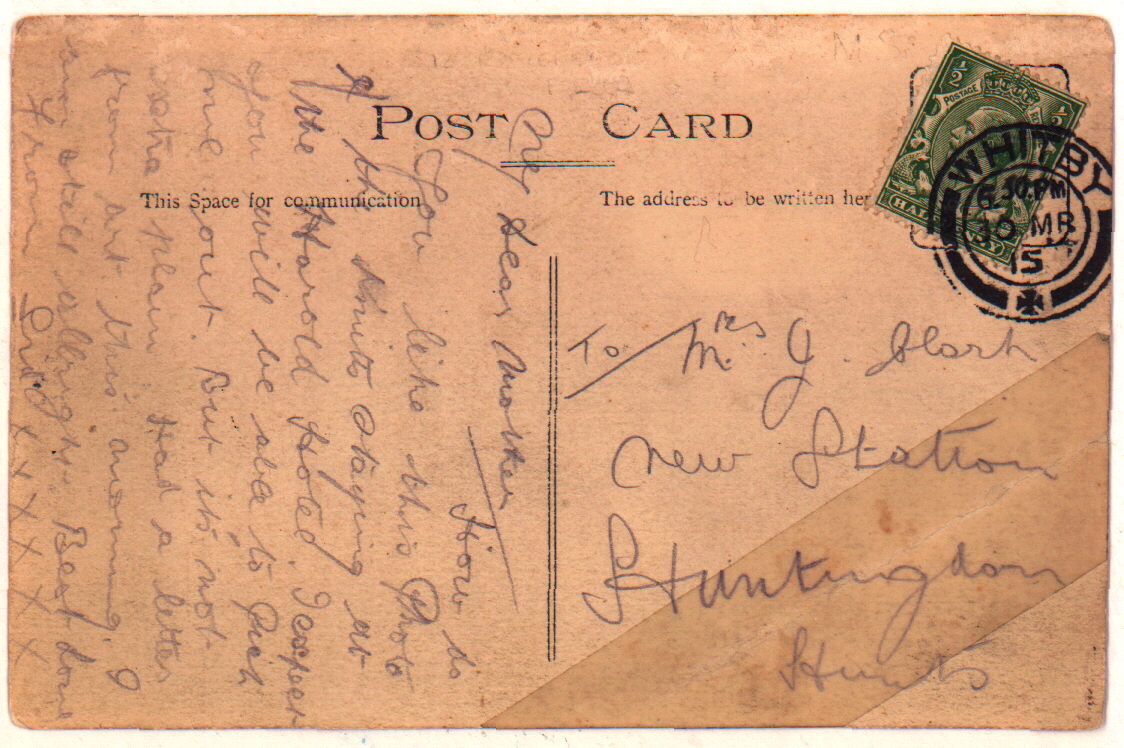 POST CARD
This Space for communication
The address to be written her
½ POSTAGE ½
WHITBY
PM
MR
15
My dear Mother
How do
you like this Photo
of the Knuts staying at
the Harold Hotel. I expect
you will be able to pick
me out. But it's not
extra plain. Had a letter
from art this morning, I
am still allright. Best Love
From
x x x x x x x
To Mrs J. Clark
New Station
Huntingdon
Hunts